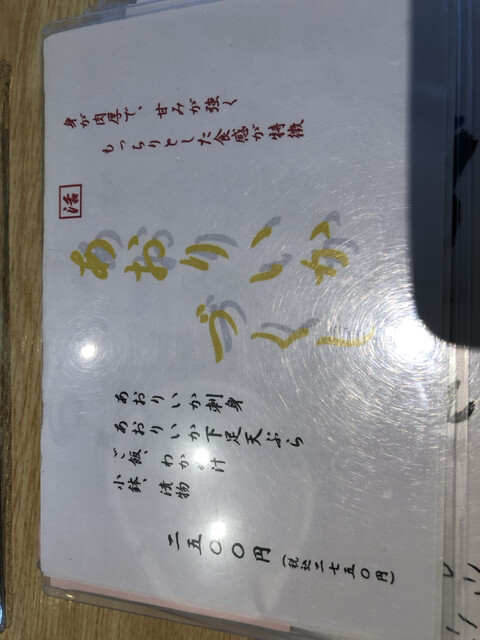 身が肉厚で、甘みが強く
もっちりとした食感が特徴
活
あおりいか
づくし
あおりいか刺身
あおりいか下足天ぷら
ご飯、わか 汁
小鉢、漬物
二五〇〇円
(税込二七五〇円)